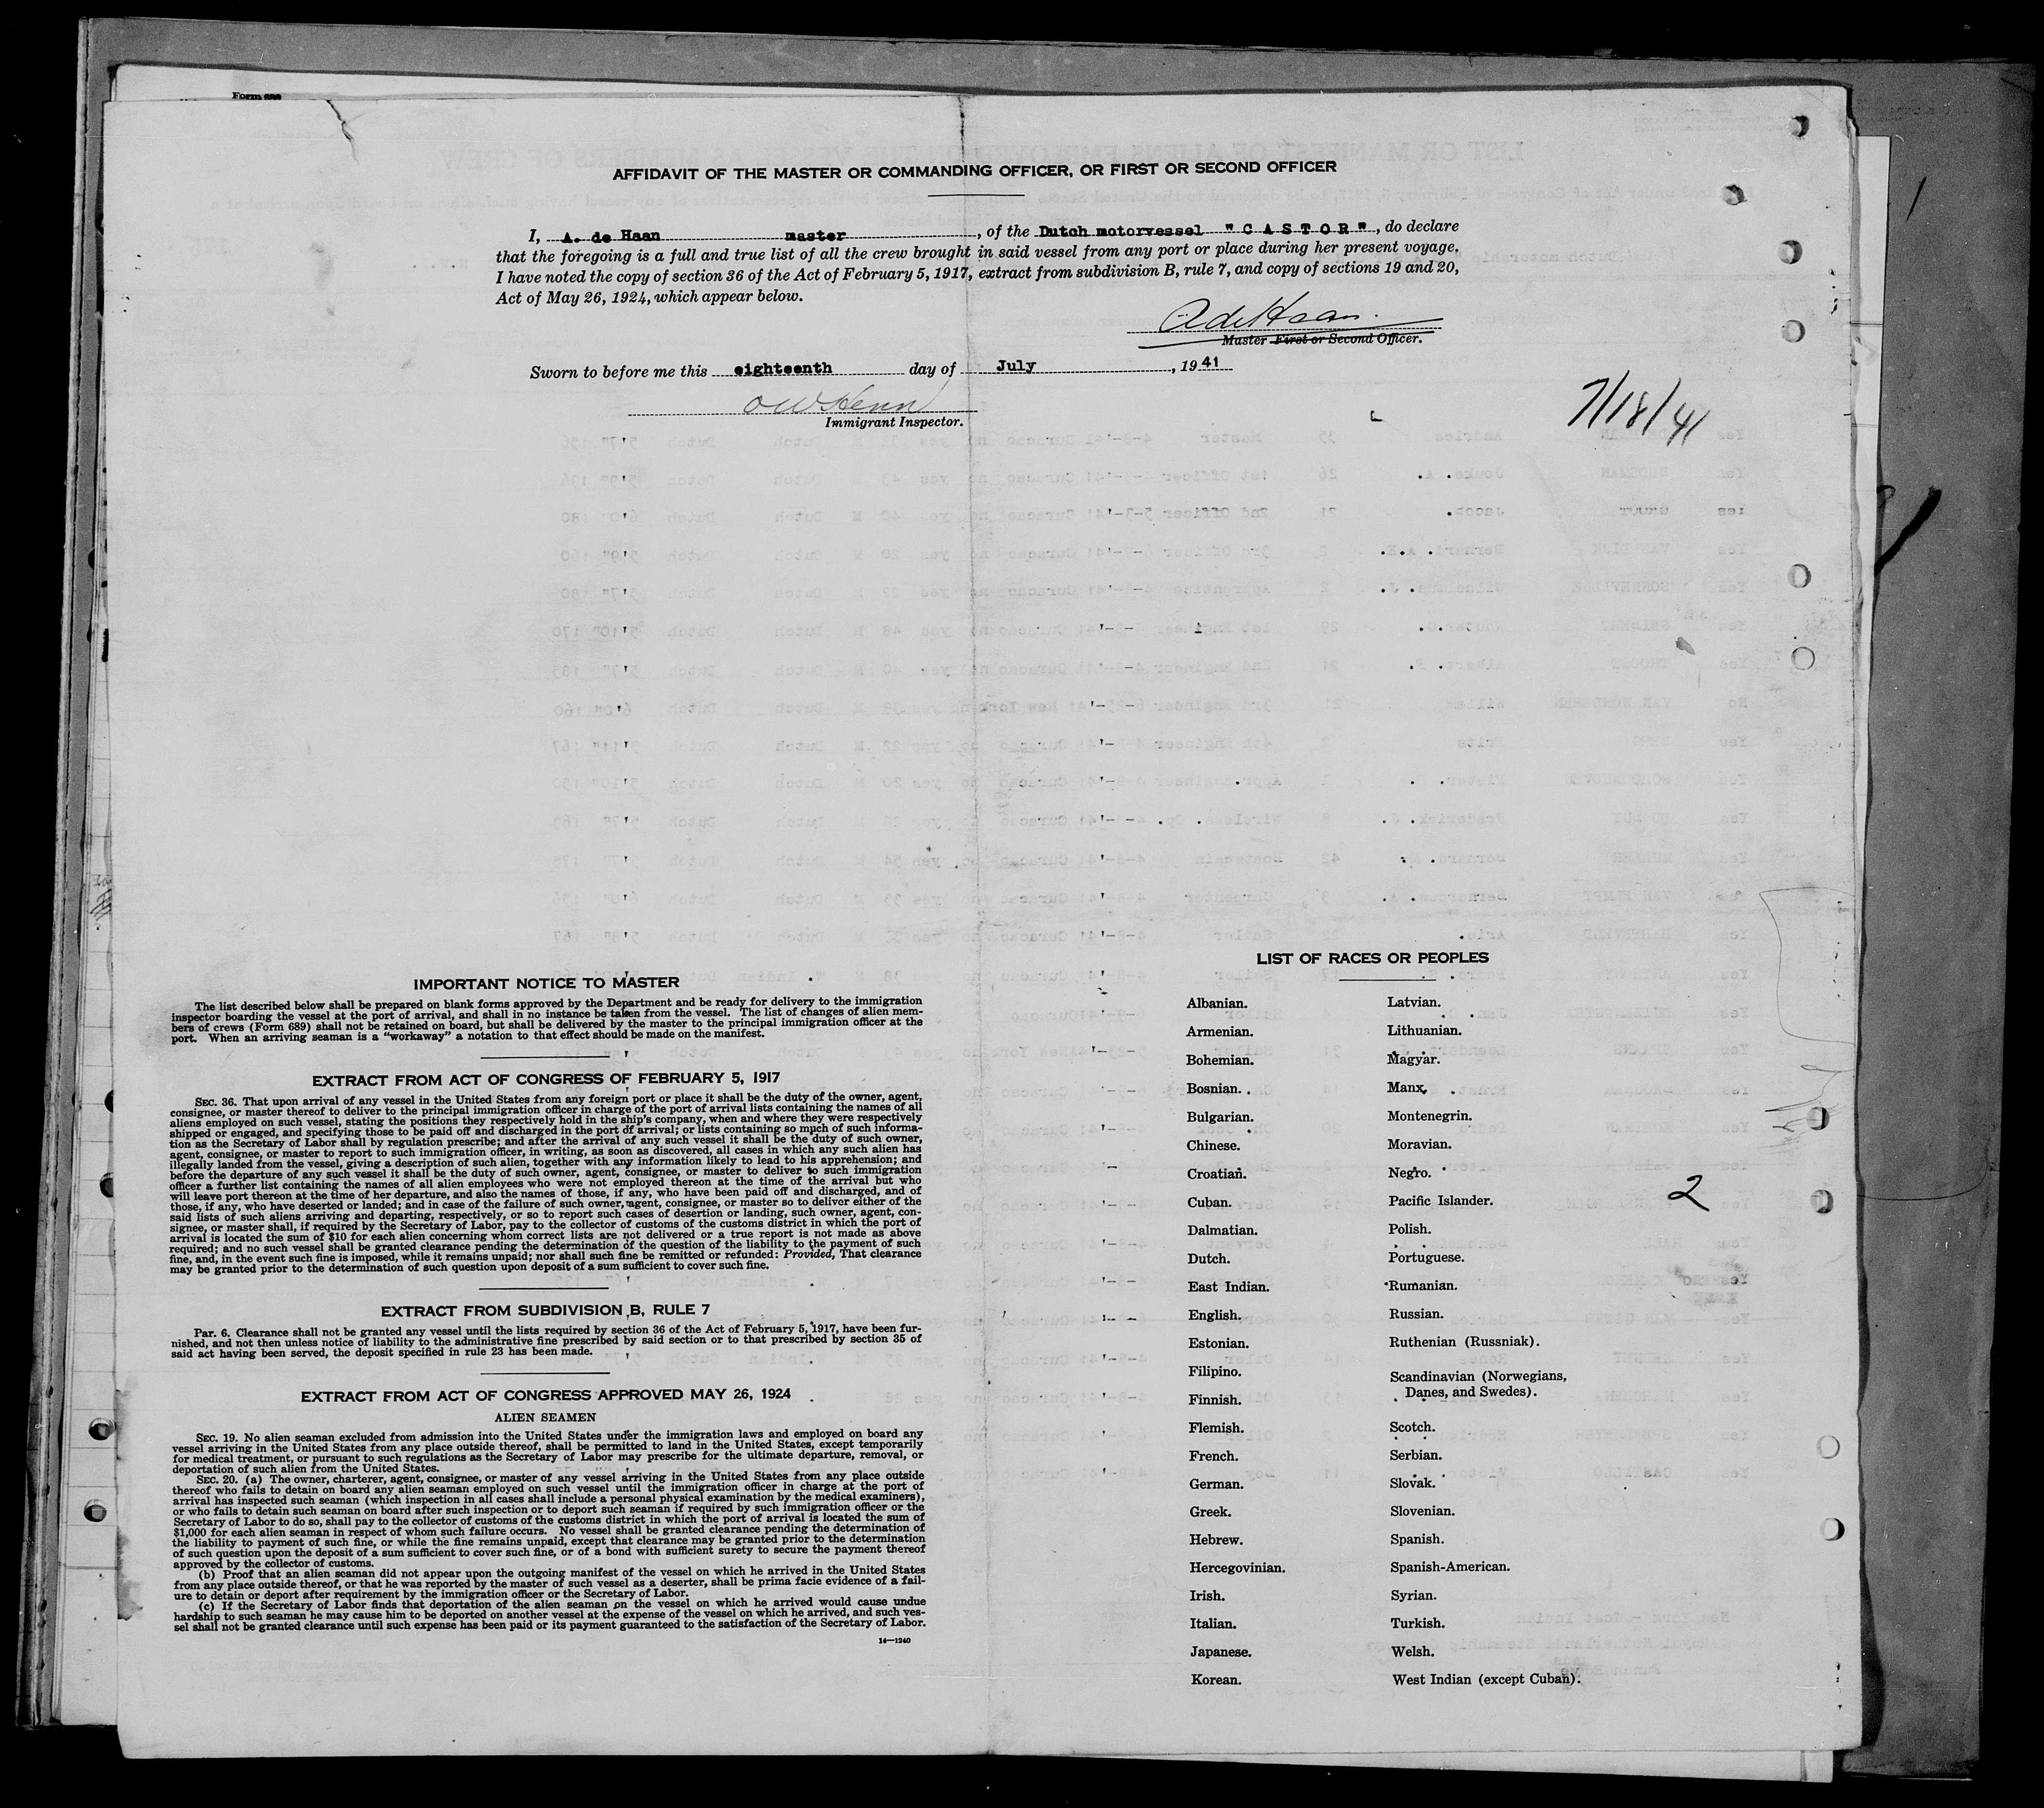 Form 689
AFFIDAVIT OF THE MASTER OR COMMANDING OFFICER, OR FIRST OR SECOND OFFICER
I, A. de Haan master, of the Dutch motorvessel "C A S T O R", do declare
that the foregoing is a full and true list of all the crew brought in said vessel from any port or place during her present voyage.
I have noted the copy of section 36 of the Act of February 5, 1917, extract from subdivision B, rule 7, and copy of sections 19 and 20,
Act of May 26, 1924, which appear below.
A de Haan.
Master First or Second Officer.
Sworn to before me this eighteenth day of July, 1941
Immigrant Inspector.
7/18/41
IMPORTANT NOTICE TO MASTER
The list described below shall be prepared on blank forms approved by the Department and be ready for delivery to the immigration
inspector boarding the vessel at the port of arrival, and shall in no instance be taken from the vessel. The list of changes of alien mem-
bers of crews (Form 689) shall not be retained on board, but shall be delivered by the master to the principal immigration officer at the
port. When an arriving seaman is a "workaway" a notation to that effect should be made on the manifest.
EXTRACT FROM ACT OF CONGRESS OF FEBRUARY 5, 1917
SEC. 36. That upon arrival of any vessel in the United States from any foreign port or place it shall be the duty of the owner, agent,
consignee, or master thereof to deliver to the principal immigration officer in charge of the port of arrival lists containing the names of all
aliens employed on such vessel, stating the positions they respectively hold in the ship's company, when and where they were respectively
shipped or engaged, and specifying those to be paid off and discharged in the port of arrival; or lists containing so much of such informa-
tion as the Secretary of Labor shall by regulation prescribe; and after the arrival of any such vessel it shall be the duty of such owner,
agent, consignee, or master to report to such immigration officer, in writing, as soon as discovered, all cases in which any such alien has
illegally landed from the vessel, giving a description of such alien, together with any information likely to lead to his apprehension; and
before the departure of any such vessel it shall be the duty of such owner, agent, consignee, or master to deliver to such immigration
officer a further list containing the names of all alien employees who were not employed thereon at the time of the arrival but who
will leave port thereon at the time of her departure, and also the names of those, if any, who have been paid off and discharged, and of
those, if any, who have deserted or landed; and in case of the failure of such owner, agent, consignee, or master so to deliver either of the
said lists of such aliens arriving and departing, respectively, or so to report such cases of desertion or landing, such owner, agent, con-
signee, or master shall, if required by the Secretary of Labor, pay to the collector of customs of the customs district in which the port of
arrival is located the sum of $10 for each alien concerning whom correct lists are not delivered or a true report is not made as above
required; and no such vessel shall be granted clearance pending the determination of the question of the liability to the payment of such
fine, and, in the event such fine is imposed, while it remains unpaid; nor shall such fine be remitted or refunded: Provided, That clearance
may be granted prior to the determination of such question upon deposit of a sum sufficient to cover such fine.
EXTRACT FROM SUBDIVISION B, RULE 7
Par. 6. Clearance shall not be granted any vessel until the lists required by section 36 of the Act of February 5, 1917, have been fur-
nished, and not then unless notice of liability to the administrative fine prescribed by said section or to that prescribed by section 35 of
said act having been served, the deposit specified in rule 23 has been made.
EXTRACT FROM ACT OF CONGRESS APPROVED MAY 26, 1924
ALIEN SEAMEN
SEC. 19. No alien seaman excluded from admission into the United States under the immigration laws and employed on board any
vessel arriving in the United States from any place outside thereof, shall be permitted to land in the United States, except temporarily
for medical treatment, or pursuant to such regulations as the Secretary of Labor may prescribe for the ultimate departure, removal, or
deportation of such alien from the United States.
SEC. 20. (a) The owner, charterer, agent, consignee, or master of any vessel arriving in the United States from any place outside
thereof who fails to detain on board any alien seaman employed on such vessel until the immigration officer in charge at the port of
arrival has inspected such seaman (which inspection in all cases shall include a personal physical examination by the medical examiners),
or who fails to detain such seaman on board after such inspection or to deport such seaman if required by such immigration officer or the
Secretary of Labor to do so, shall pay to the collector of customs of the customs district in which the port of arrival is located the sum of
$1,000 for each alien seaman in respect of whom such failure occurs. No vessel shall be granted clearance pending the determination of
the liability to payment of such fine, or while the fine remains unpaid, except that clearance may be granted prior to the determination
of such question upon the deposit of a sum sufficient to cover such fine, or of a bond with sufficient surety to secure the payment thereof
approved by the collector of customs.
(b) Proof that an alien seaman did not appear upon the outgoing manifest of the vessel on which he arrived in the United States
from any place outside thereof, or that he was reported by the master of such vessel as a deserter, shall be prima facie evidence of a fail-
ure to detain or deport after requirement by the immigration officer or the Secretary of Labor.
(c) If the Secretary of Labor finds that deportation of the alien seaman on the vessel on which he arrived would cause undue
hardship to such seaman he may cause him to be deported on another vessel at the expense of the vessel on which he arrived, and such ves-
sel shall not be granted clearance until such expense has been paid or its payment guaranteed to the satisfaction of the Secretary of Labor.
14—1240
LIST OF RACES OR PEOPLES
Albanian.
Armenian.
Bohemian.
Bosnian.
Bulgarian.
Chinese.
Croatian.
Cuban.
Dalmatian.
Dutch.
East Indian.
English.
Estonian.
Filipino.
Finnish.
Flemish.
French.
German.
Greek.
Hebrew.
Hercegovinian.
Irish.
Italian.
Japanese.
Korean.
Latvian.
Lithuanian.
Magyar.
Manx.
Montenegrin.
Moravian.
Negro.
Pacific Islander.
Polish.
Portuguese.
Rumanian.
Russian.
Ruthenian (Russniak).
Scandinavian (Norwegians,
Danes, and Swedes).
Scotch.
Serbian.
Slovak.
Slovenian.
Spanish.
Spanish-American.
Syrian.
Turkish.
Welsh.
West Indian (except Cuban).
2